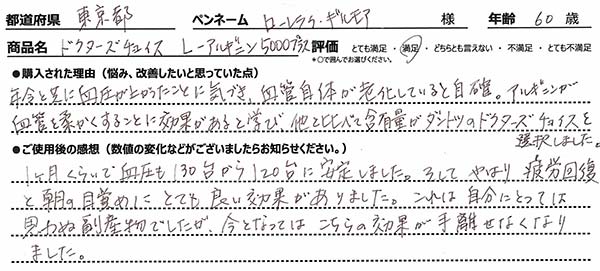 都道府県 東京都 ペンネーム ローレライ・ギルモア 様 年齢 60 歳
商品名 ドクターズチョイス L-アルギニン5000プラス 評価 とても満足・満足・どちらとも言えない・不満足・とても不満足
*○で囲んでお選びください。
●購入された理由（悩み、改善したいと思っていた点）
年令と共に血圧が上がったことに気づき、血管自体が老化していると自確。アルギニンが
血管を柔かくすることに効果があると学び、他と比べて含有量がダントツのドクターズチョイスを
選択しました。
●ご使用後の感想（数値の変化などがございましたらお知らせください。）
1ヶ月くらいで血圧も130台から120台に安定しました。そして やはり 疲労回復
と朝の目覚めに とても 良い効果が ありました。これは 自分にとっては
思わぬ副産物でしたが、今となっては こちらの効果が手離せなくなり
ました。